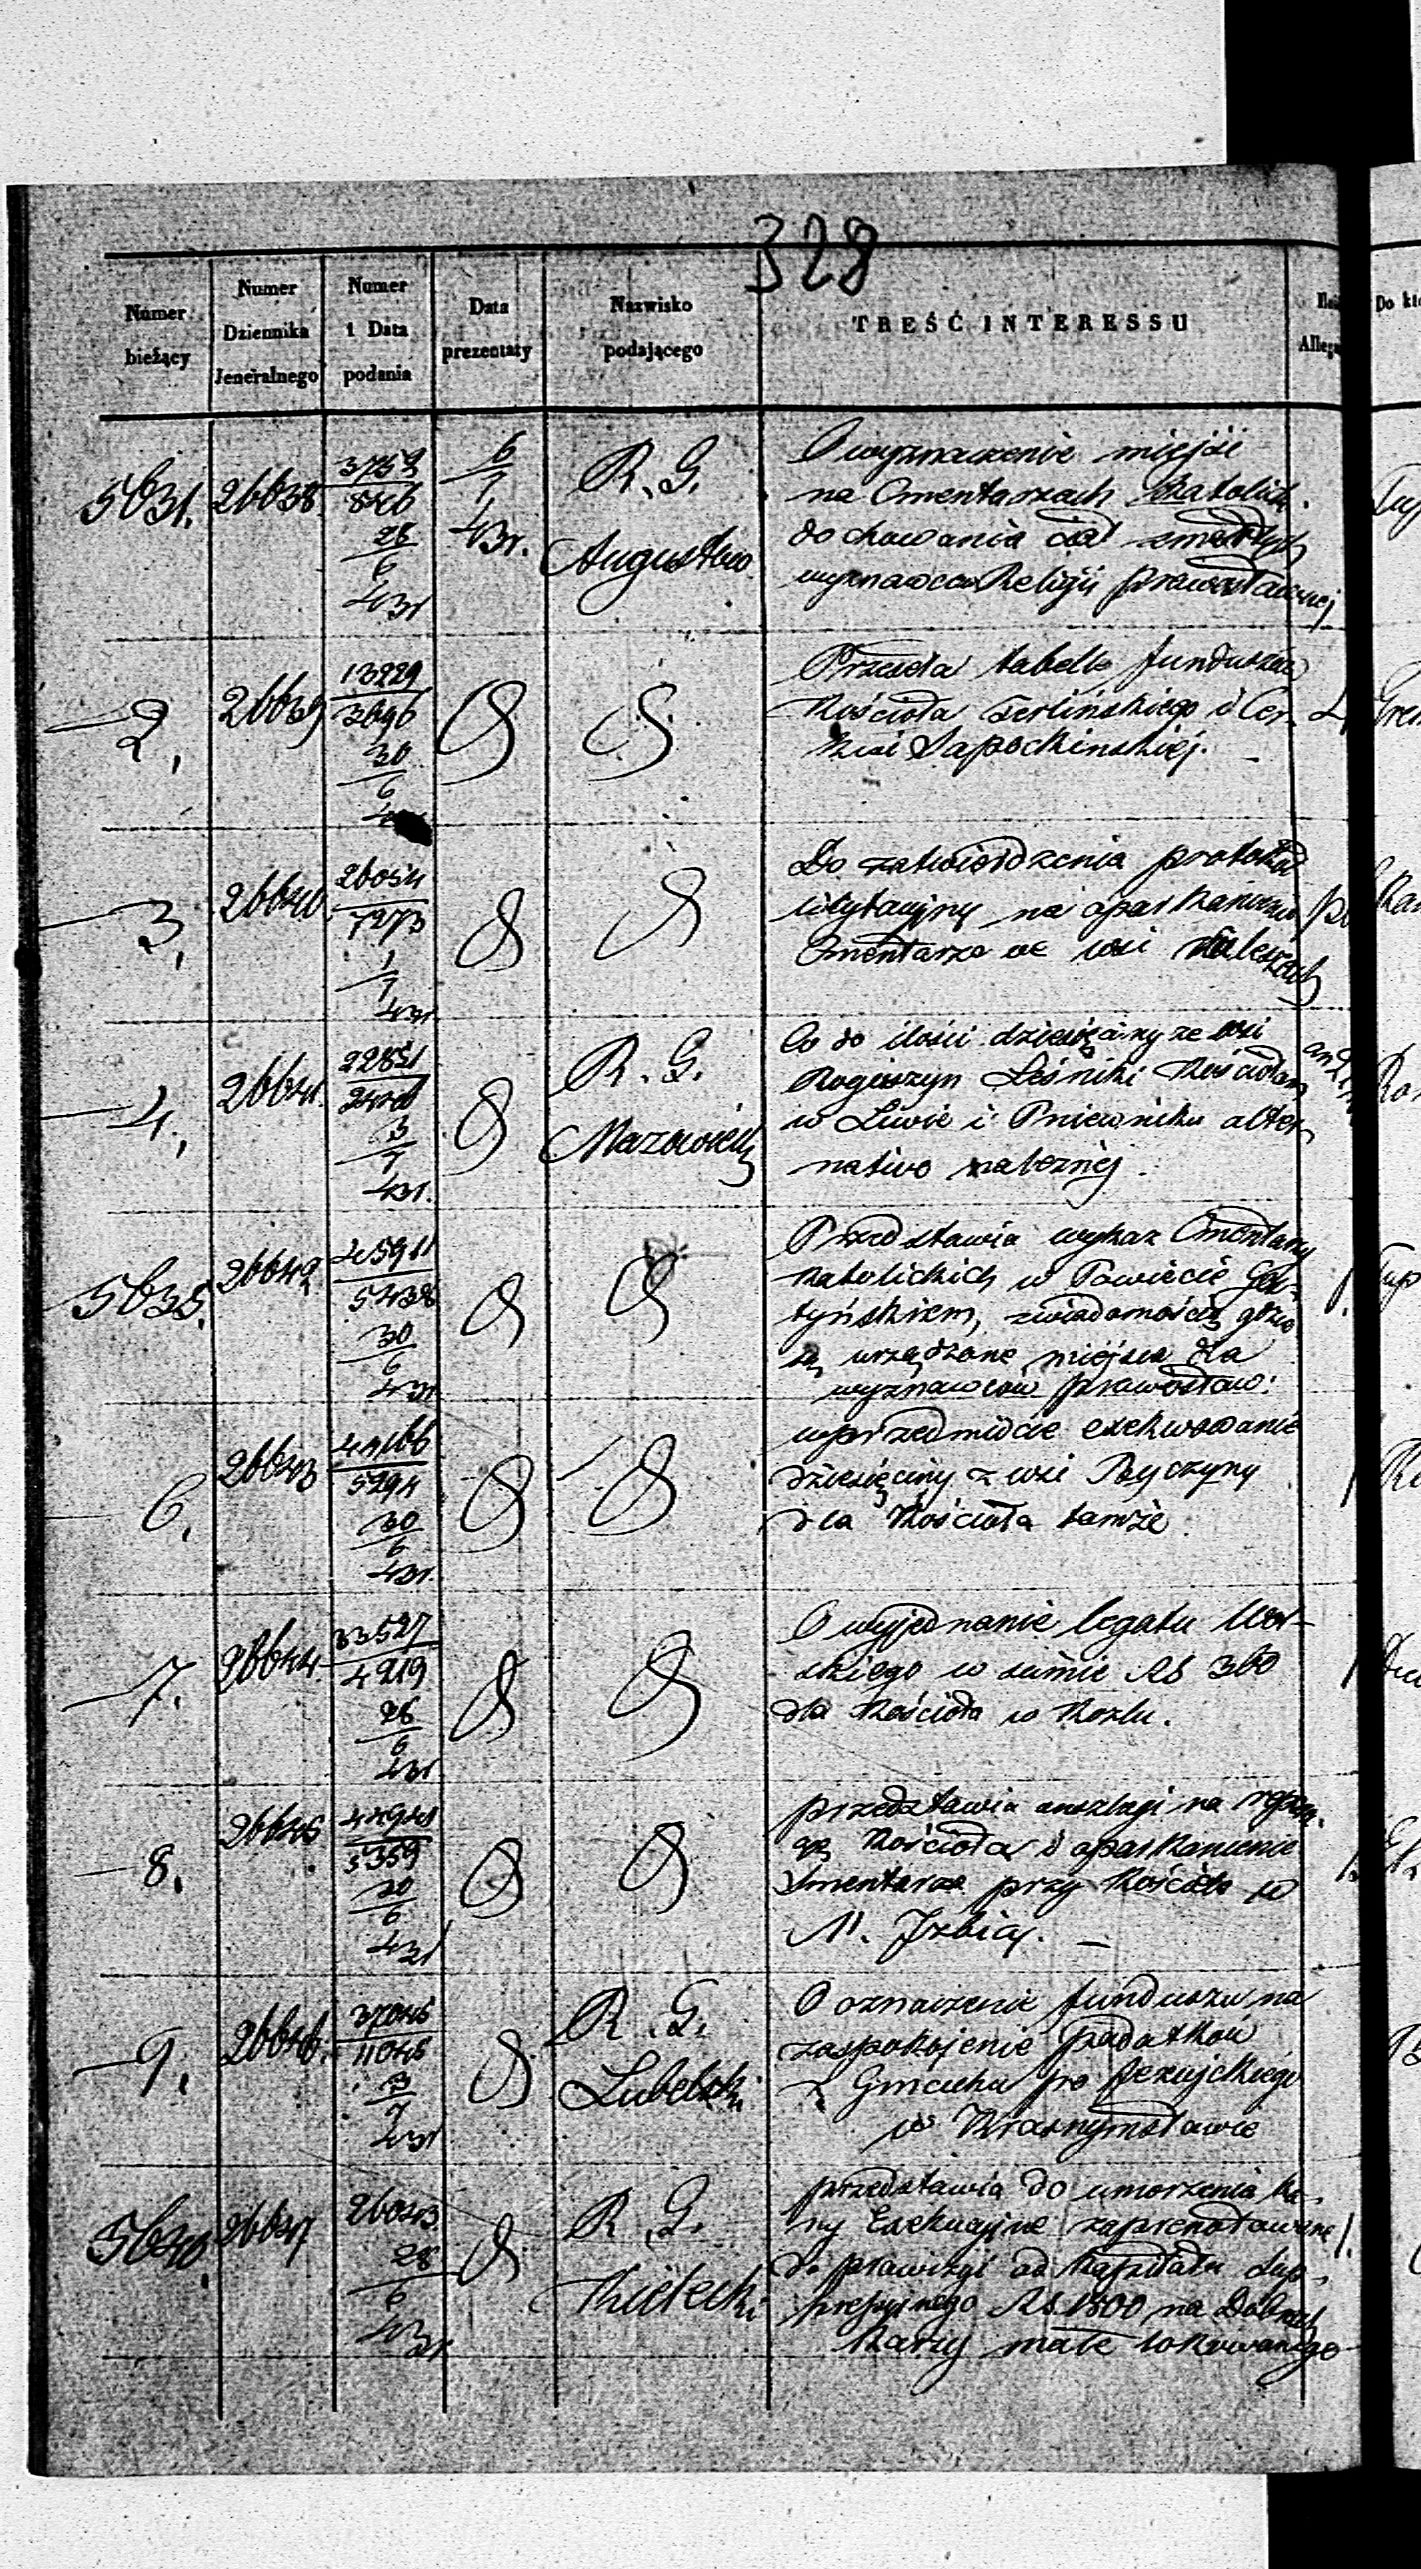 328
Numer bieżący
Numer Dziennika Jeneralnego
Numer i Data podania
Data prezentaty
Nazwisko podającego
TREŚĆ INTERESSU
Allega
Do któ
5631. 26638. 3759 / 846 28/6 431 6/7 431. R. G. Augustow.
O wyznaczenie miejsc
na Cmentarzach Katolick.
do chowania ciał zmarłych
wyznawców Religii prawosławnej
2, 26639 13229 / 3696 30/6
Przesyła tabelle funduszów
Kościoła Terlińskiego i Cer-
kwi Sapockinskiej.
3, 26640 26054 / 7273 1/7 431
Do zatwierdzenia protokuł
licytacyjny na oparkanienie
Cmentarza we wsi
4, 26641. 22851 3/7 431. R. G. Mazowieck
Co do ilości dziesięciny ze wsi
Rogużyn Leśniki Kościołom
w Liwie i Pniewniku alter-
nativo należnej.
5635. 26642 45911 / 5438 30/6 431
Przedstawia wykaz Cmentarzy
Katolickich w Powiecie Gos-
tyńskiem, z wiadomością gdzie
są urządzone miejsca dla
wyznawców prawosław:
6. 26643 44166 / 5294 30/6 431.
w przedmiocie exekwowanie
dziesięciny z wsi Byczyny
dla Kościoła tamże.
7. 26644. 33527 / 4219 26/6 431
O wyjednanie legatu Wol-
skiego w summie RS 360
dla Kościoła w Kozlu.
8. 26645 44941 / 5359 30/6 431
przedstawia anszlagi na repara-
cyą Kościoła i oparkanienie
Smentarza przy Kościele w
M. Izbicy. —
9. 26646. 37045 / 11045 3/7 431 R. G. Lubelski
O oznaczenie funduszu na
zaspokojenie podatków
z Gmachu po Jezuickiego
w Krasnymstawie
5640. 26647 26043. 28/6 431 R. G. Kielecki
przedstawia do umorzenia ka-
ry Exekucyjne zaprenotowane
do prowizyi od Kapitału Sup-
presyjnego RS. 1500 na Dobrach
małe lokowanego